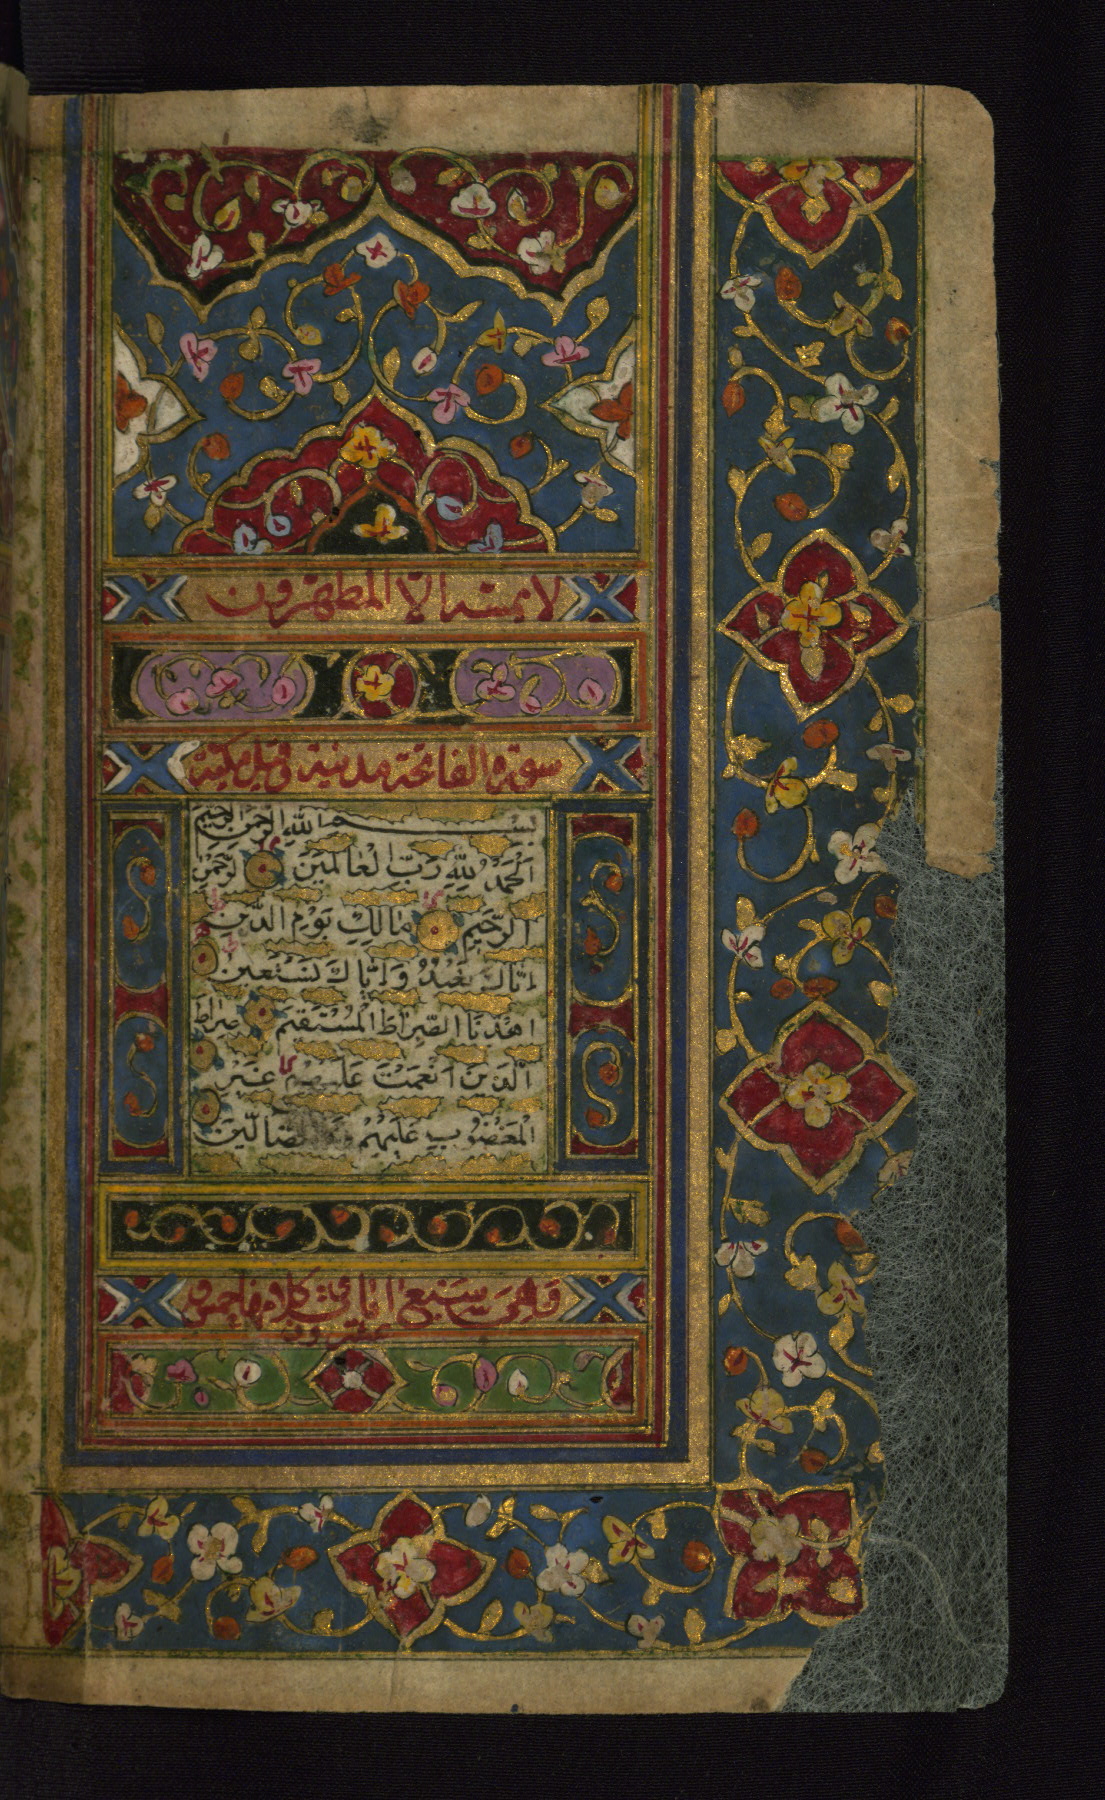 لا يمسه الا المطهرون
سورة الفاتحة مدنية وقيل مكية
بسم الله الرحمن الرحيم
اَلْحَمْدُ لِلّٰهِ رَبِّ الْعٰالَمينَ اَلرَّحْمٰنِ
الرَّحيمِ مٰالِكِ يَوْمِ الدّينِ
اِيّٰاكَ نَعْبُدُ وَ اِيّٰاكَ نَسْتَعينُ
اِهْدِنَا الصِّرٰاطَ الْمُسْتَقيمَ صِرٰاطَ
الَّذينَ اَنْعَمْتَ عَلَيْهِمْ غَيْرِ
الْمَغْضُوبِ عَلَيْهِمْ وَلَا الضّٰالّينَ
وهى سبع ايات